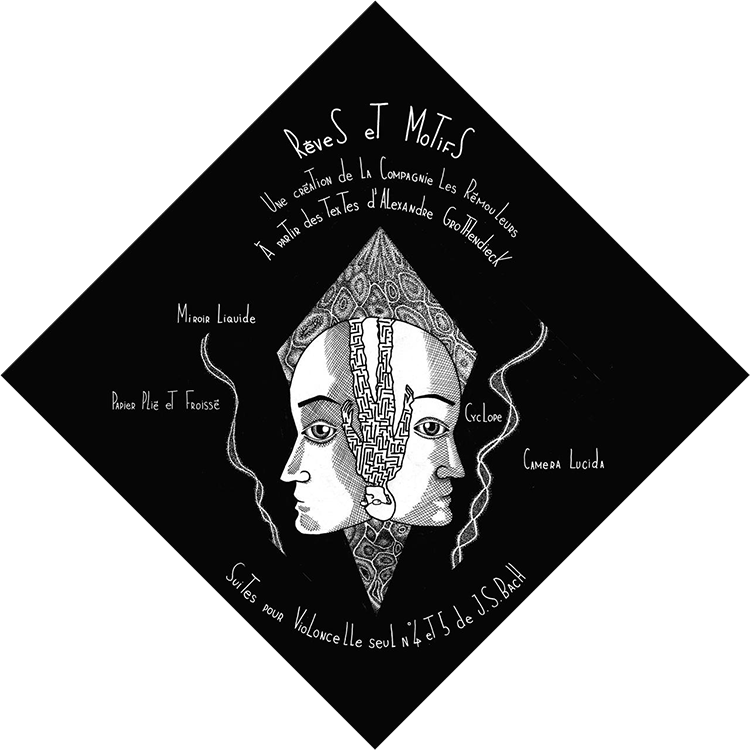 Rêves et Motifs
Une création de la Compagnie Les Rémouleurs
À partir des textes d'Alexandre Grothendieck
Miroir Liquide
Papier Plié et Froissé
Cyclope
Camera Lucida
Suites pour Violoncelle seul n°4 et 5 de J.S.Bach